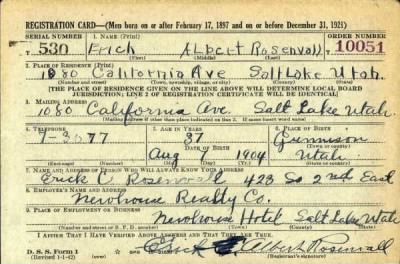 REGISTRATION CARD—(Men born on or after February 17, 1897 and on or before December 31, 1921)
SERIAL NUMBER 1. NAME (Print) ORDER NUMBER
530 Erich Albert Rosenvall 10051
(First) (Middle) (Last)
2. PLACE OF RESIDENCE (Print)
1080 California Ave Salt Lake Utah.
(Number and street) (Town, township, village, or city) (County) (State)
[THE PLACE OF RESIDENCE GIVEN ON THE LINE ABOVE WILL DETERMINE LOCAL BOARD
JURISDICTION; LINE 2 OF REGISTRATION CERTIFICATE WILL BE IDENTICAL]
3. MAILING ADDRESS
1080 California Ave. Salt Lake Utah
[Mailing address if other than place indicated on line 2. If same insert word same]
4. TELEPHONE 5. AGE IN YEARS 6. PLACE OF BIRTH
37 Gunnison
DATE OF BIRTH (Town or county)
Aug 1904 Utah
(Exchange) (Number) (Mo.) (Day) (Yr.) (State or country)
7. NAME AND ADDRESS OF PERSON WHO WILL ALWAYS KNOW YOUR ADDRESS
Erick C Rosenvall 423 So 2nd East
8. EMPLOYER'S NAME AND ADDRESS
Newhouse Realty Co.
9. PLACE OF EMPLOYMENT OR BUSINESS
Newhouse Hotel Salt Lake Utah
(Number and street or R. F. D. number) (Town) (County) (State)
I AFFIRM THAT I HAVE VERIFIED ABOVE ANSWERS AND THAT THEY ARE TRUE.
D. S. S. Form 1
(Revised 1-1-42) Albert Rosenvall